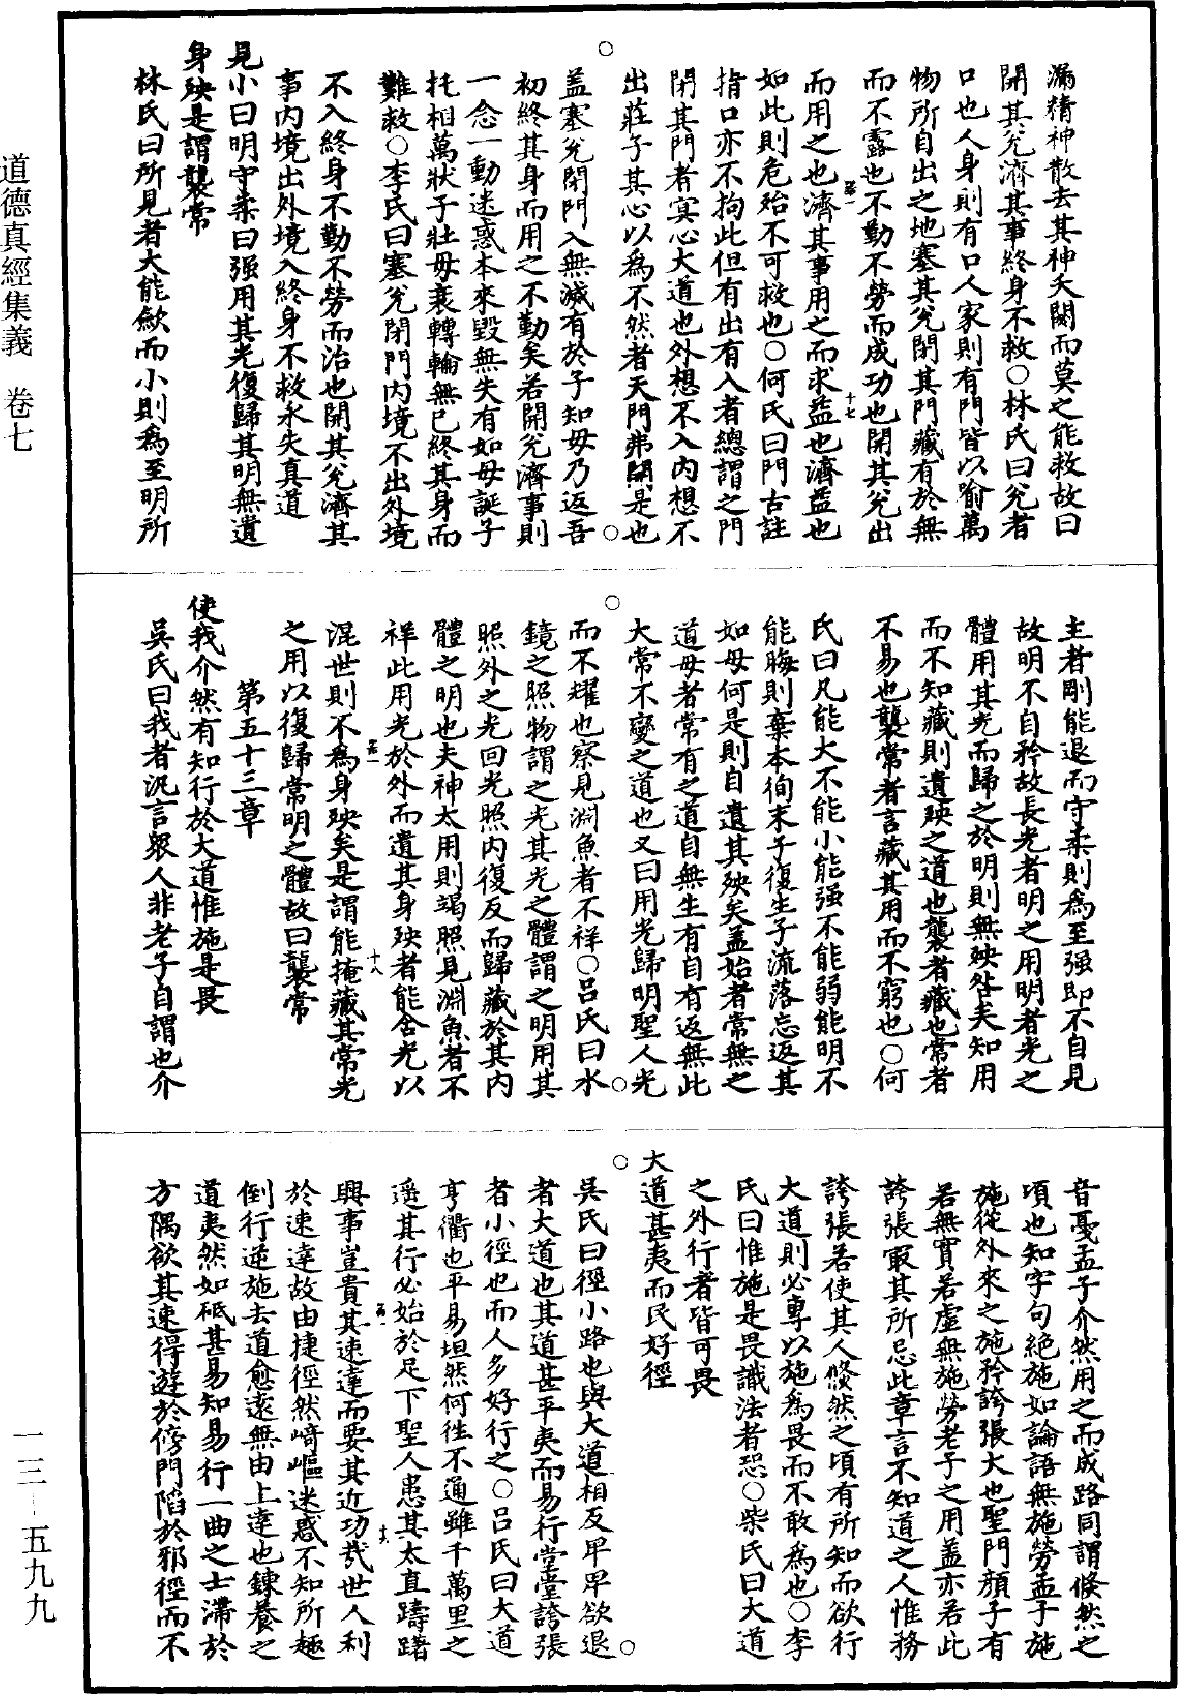 漏精神散去其神夭閼而莫之能救故曰
開其兌濟其事終身不救○林氏曰兌者
口也人身則有口人家則有門皆以喻萬
物所自出之地塞其兌閉其門藏有於無
而不露也不勤不勞而成功也開其兌出
而用之也濟其事用之而求益也濟益也
如此則危殆不可救也○何氏曰門古註
指口亦不拘此但有出有入者總謂之門
閉其門者冥心大道也外想不入內想不
出莊子其心以為不然者天門弗開是也
○
蓋塞兌閉門入無減有於子知母乃返吾
初終其身而用之不勤矣若開兌濟事則
一念一動迷惑本來毀無失有如母誕子
托相萬狀子壯母衰轉輪無已終其身而
難救○李氏曰塞兌閉門內境不出外境
不入終身不勤不勞而治也開其兌濟其
事內境出外境入終身不救永失真道
見小曰明守柔曰强用其光復歸其明無遺
身殃是謂襲常
林氏曰所見者大能歛而小則為至明所
主者剛能退而守柔則為至强即不自見
故明不自矜故長光者明之用明者光之
體用其光而歸之於明則無殃咎矣知用
而不知藏則遺殃之道也襲者藏也常者
不易也襲常者言藏其用而不窮也○何
氏曰凡能大不能小能强不能弱能明不
能晦則棄本徇末子復生子流落忘返其
如母何是則自遺其殃矣蓋始者常無之
道母者常有之道自無生有自有返無此
大常不變之道也又曰用光歸明聖人光
而不耀也察見淵魚者不祥○呂氏曰水
鏡之照物謂之光其光之體謂之明用其
照外之光回光照內復反而歸藏於其內
體之明也夫神太用則竭照見淵魚者不
祥此用光於外而遺其身殃者能含光以
混世則不為身殃矣是謂能掩藏其常光
之用以復歸常明之體故曰襲常
第五十三章
使我介然有知行於大道惟施是畏
吳氏曰我者汎言衆人非老子自謂也介
音戞孟子介然用之而成路同謂倏然之
頃也知字句絕施如論語無施勞孟子施
施從外來之施矜誇張大也聖門顏子有
若無實若虛無施勞老子之用蓋亦若此
誇張最其所忌此章言不知道之人惟務
誇張若使其人倏然之頃有所知而欲行
大道則必專以施為畏而不敢為也○李
氏曰惟施是畏識法者恐○柴氏曰大道
之外行者皆可畏
大道甚夷而民好徑
吳氏曰徑小路也與大道相反卑卑欲退
者大道也其道甚平夷而易行堂堂誇張
者小徑也而人多好行之○呂氏曰大道
亨衢也平易坦然何徃不通雖千萬里之
遥其行必始於足下聖人患其太直躊躇
興事豈貴其速達而要其近功㢤世人利
於速達故由捷徑然﨑嶇迷惑不知所趨
倒行逆施去道愈遠無由上達也鍊養之
道夷然如砥甚易知易行一曲之士滯於
方隅欲其速得遊於傍門陷於邪徑而不
道德真經集義　卷七
一三—五九九